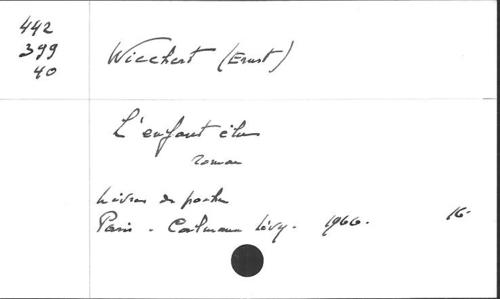 442
399
40
Wiechert (Ernst)
L'enfant élu
roman
Livres de poche
Paris - Calmann Lévy - 1966 - 16-